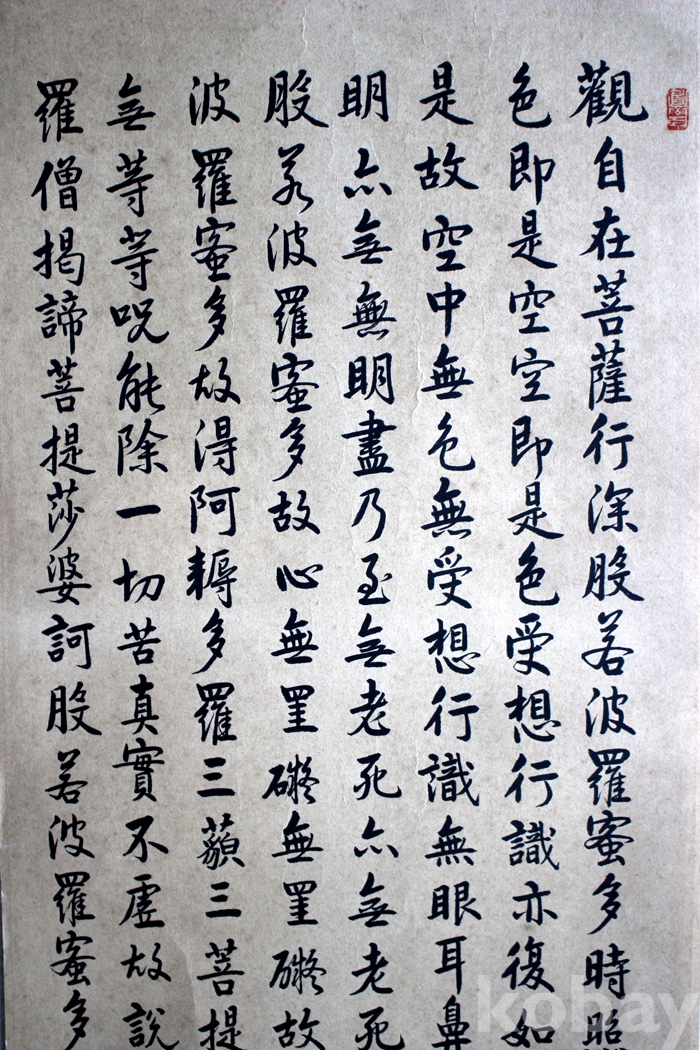 觀自在菩薩行深般若波羅蜜多時照
色即是空空即是色受想行識亦復如
是故空中無色無受想行識無眼耳鼻
明亦無無明盡乃至無老死亦無老死
般若波羅蜜多故心無罣礙無罣礙故
波羅蜜多故得阿耨多羅三藐三菩提
無等等呪能除一切苦真實不虛故說
羅僧揭諦菩提莎婆訶般若波羅蜜多
kobay